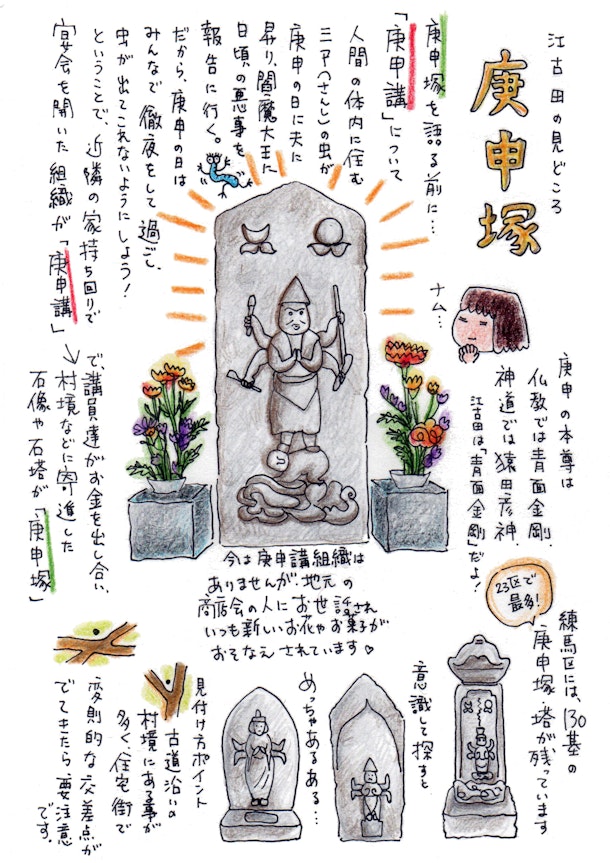 江古田の見どころ
庚申塚
庚申塚を語る前に…
「庚申講」について
人間の体内に住む
三尸(さんし)の虫が
庚申の日に夫に
昇り、閻魔大王に
日頃の悪事を
報告に行く。
だから、庚申の日は
みんなで徹夜をして過ごし、
虫が出てこれないようにしよう!
ということで、近隣の家持ち回りで
宴会を開いた組織が「庚申講」
→で、講員達がお金を出し合い、
村境などに寄進した
石像や石塔が「庚申塚」
ナム…
庚申の本尊は
仏教では青面金剛、
神道では猿田彦神、
江古田は「青面金剛」だよ!
今は庚申講組織は
ありませんが、地元の
商店会の人にお世話され
いつも新しいお花やお菓子が
おそなえされています♡
23区で
最多!
練馬区には、130基の
庚申塚・塔が残っています
意識して探すと
めっちゃあるある…
見付け方ポイント
古道沿いの
村境にある事が
多く、住宅街で
変則的な交差点が
でてきたら要注意
です。